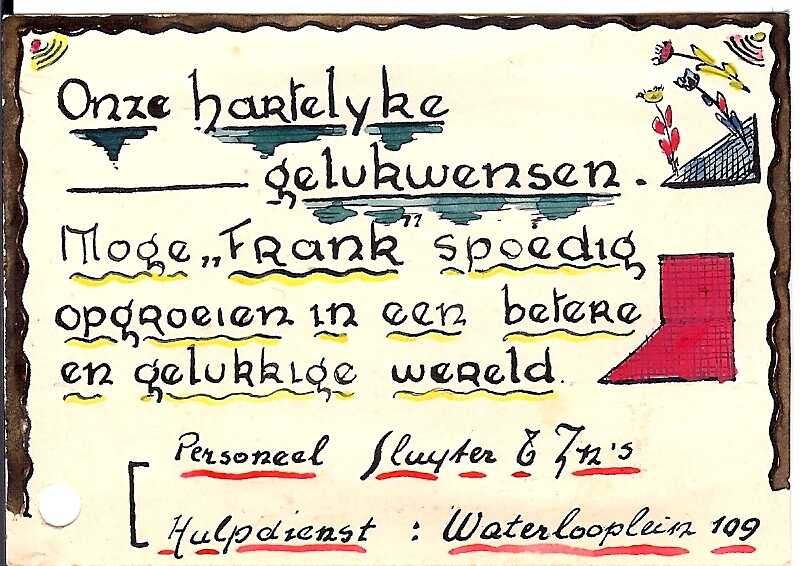 Onze hartelyke
gelukwensen.
Moge „Frank” spoedig
opgroeien in een betere
en gelukkige wereld.
Personeel Sluyter & Zn's
Hulpdienst : Waterlooplein 109